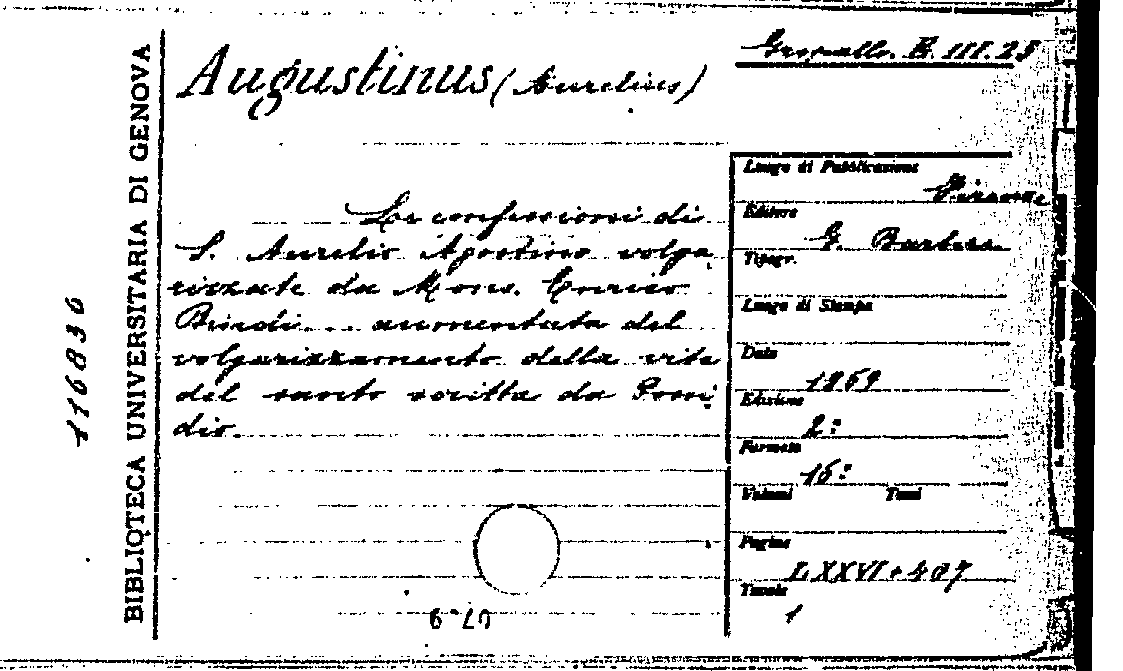 Gropallo. B. III. 25
Augustinus (Aurelius)
Le confessioni di
S. Aurelio Agostino volga
rizzate da Mons. Enrico
Bindi... aumentata del
volgarizzamento della vita
del santo scritta da Possi
dio.
Luogo di Pubblicazione
Firenze
Editore
G. Barbèra
Tipogr.
Luogo di Stampa
Data
1869
Edizione
2ª
Formato
16º
Volumi Tomi
Pagine
LXXVI + 407
Tavole
1
BIBLIOTECA UNIVERSITARIA DI GENOVA
116830